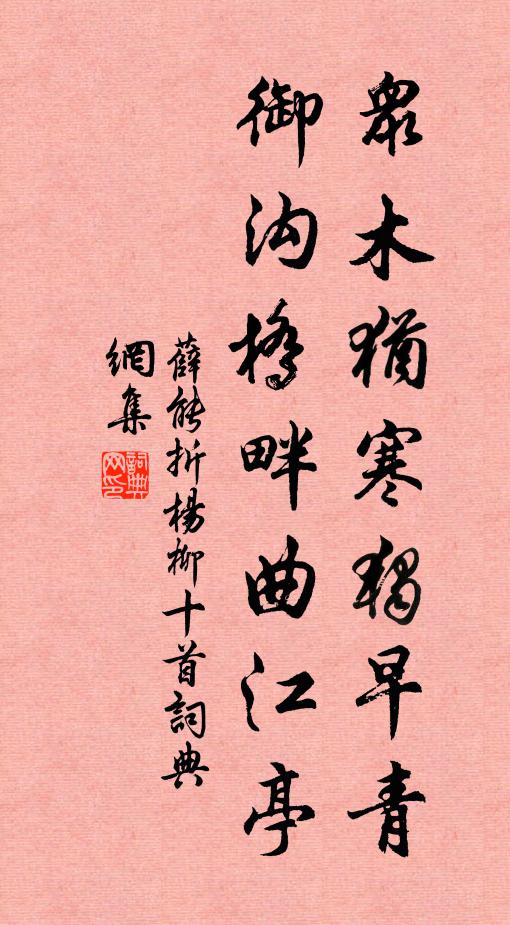 眾木猶寒獨早青
御沟橋畔曲江亭
薛能折楊柳十首詞典
網集
詞典
网印